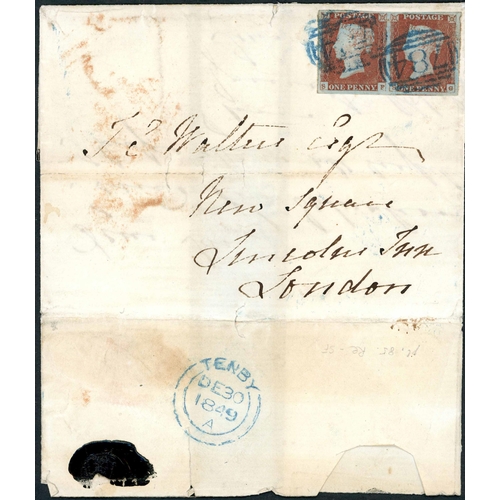 POSTAGE POSTAGE
ONE PENNY ONE PENNY
784
Walters Esqr
New Square
Lincolns Inn
London
TENBY
DE30
1849
A